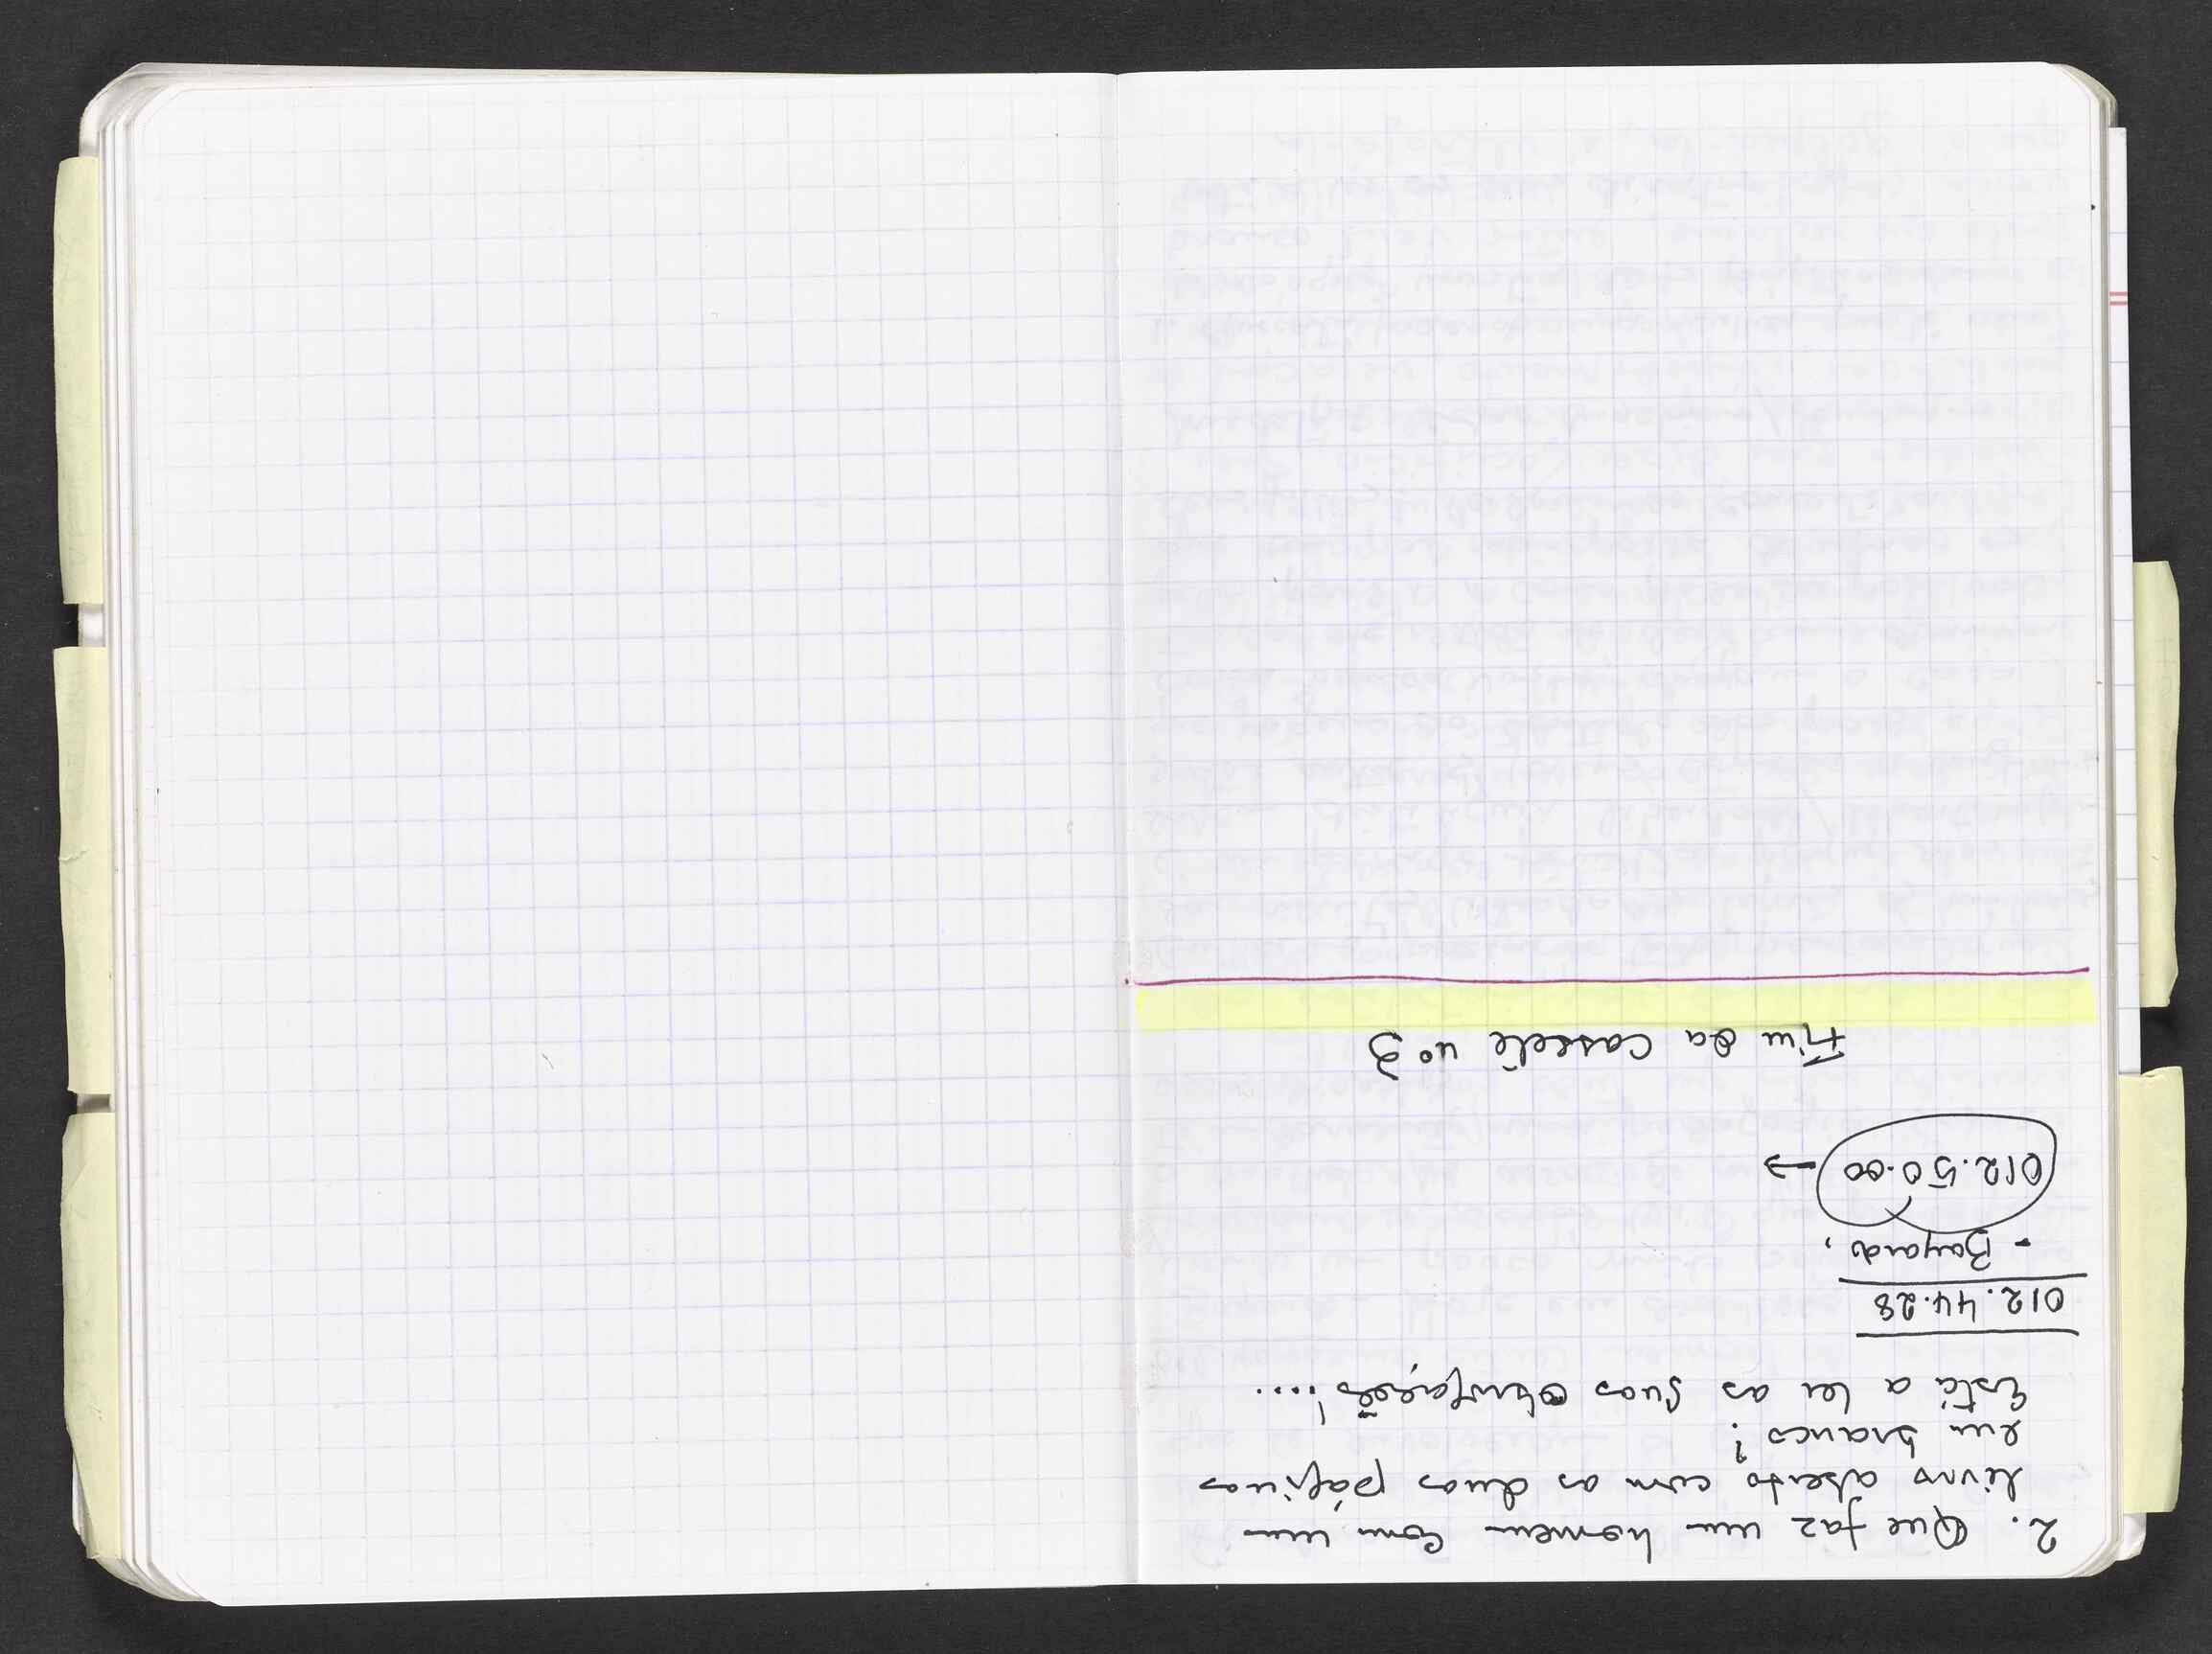 2. Que faz um homem com um
livro aberto com as duas páginas
em branco?
Está a ler as suas !....
012.44.28
- Bayard,
012.50.00 →
Fim da cassete nº 3